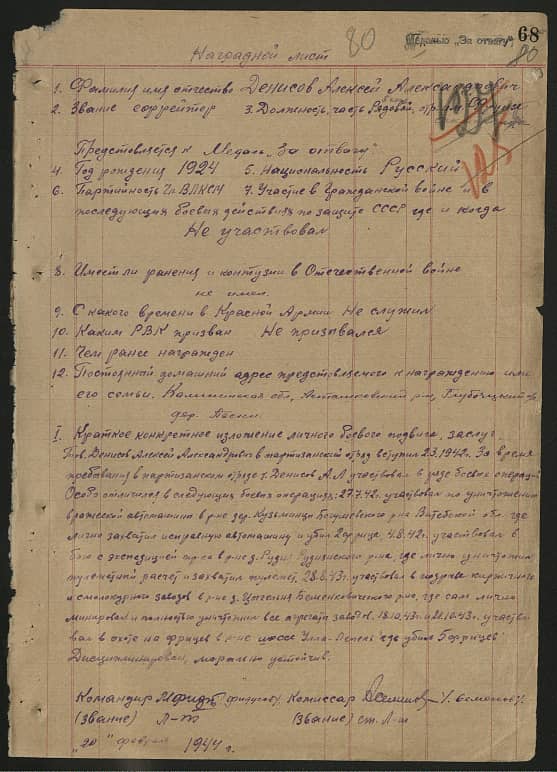 68
80
Медалью „За отвагу"
80
Наградной лист
1. Фамилия имя отчество Денисов Алексей Александрович
2. Звание ефрейтор 3. Должность, часть Рядовой
Предстовляется к Медаль „За отвагу"
4. Год рождения 1924 5. Национальность Русский
6. Партийность Чл. ВЛКСМ 7. Участие в Гражданской войне и в
последующих боевых действиях по защите СССР где и когда
Не участвовал
8. Имеет ли ранения и контузии в Отечественной войне
не имел.
9. С какого времени в Красной Армии Не служил
10. Каким РВК призван Не призывался
11. Чем ранее награжден
12. Постоянный домашний адрес предстовляемого к награждению или
его семьи. Калининская обл,
дер.
I. Краткое конкретное изложение личного боевого подвига, заслуг
Тов. Денисов Алексей Александрович в партизанский отряд вступил 2.3.1942г. За время
пребывания в партизанском отряде т. Денисов А.А участвовал в ряде боевых операций
Особо отличился в следующих боевых операциях: 27.7.42. участвовал по уничтожению
вражеской автомашины в р-не дер. Кузьминцы Бешенковского р-на Витебской обл. где
лично захватил исправную автомашину и убил 2 фрица. 4.8.42г. участвовал в
бою с экспедицией в р-не д. где лично уничтожил
пулеметный расчет и захватил пулемет. 28.8.43г. участвовал в кирпичного
и смолокурного заводов в р-не д. Бешенковичского р-на, где сам лично
минировал и полностью уничтожил все агрегаты завода. 18.10.43г и 21.10.43г. участво
вал в охоте на фрицев в р-не шоссе Улла-Лепель где убил 6 фрицев.
Дисциплинирован, морально устойчив.
Командир Комиссар
(звание) Л-т (звание) ст. Л-т
„20" февраля 1944 г.